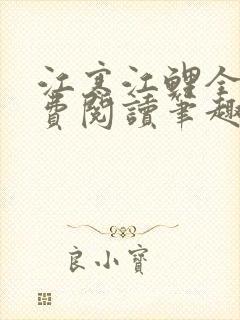 江寒江鲤全
费阅读笔趣
良小寶